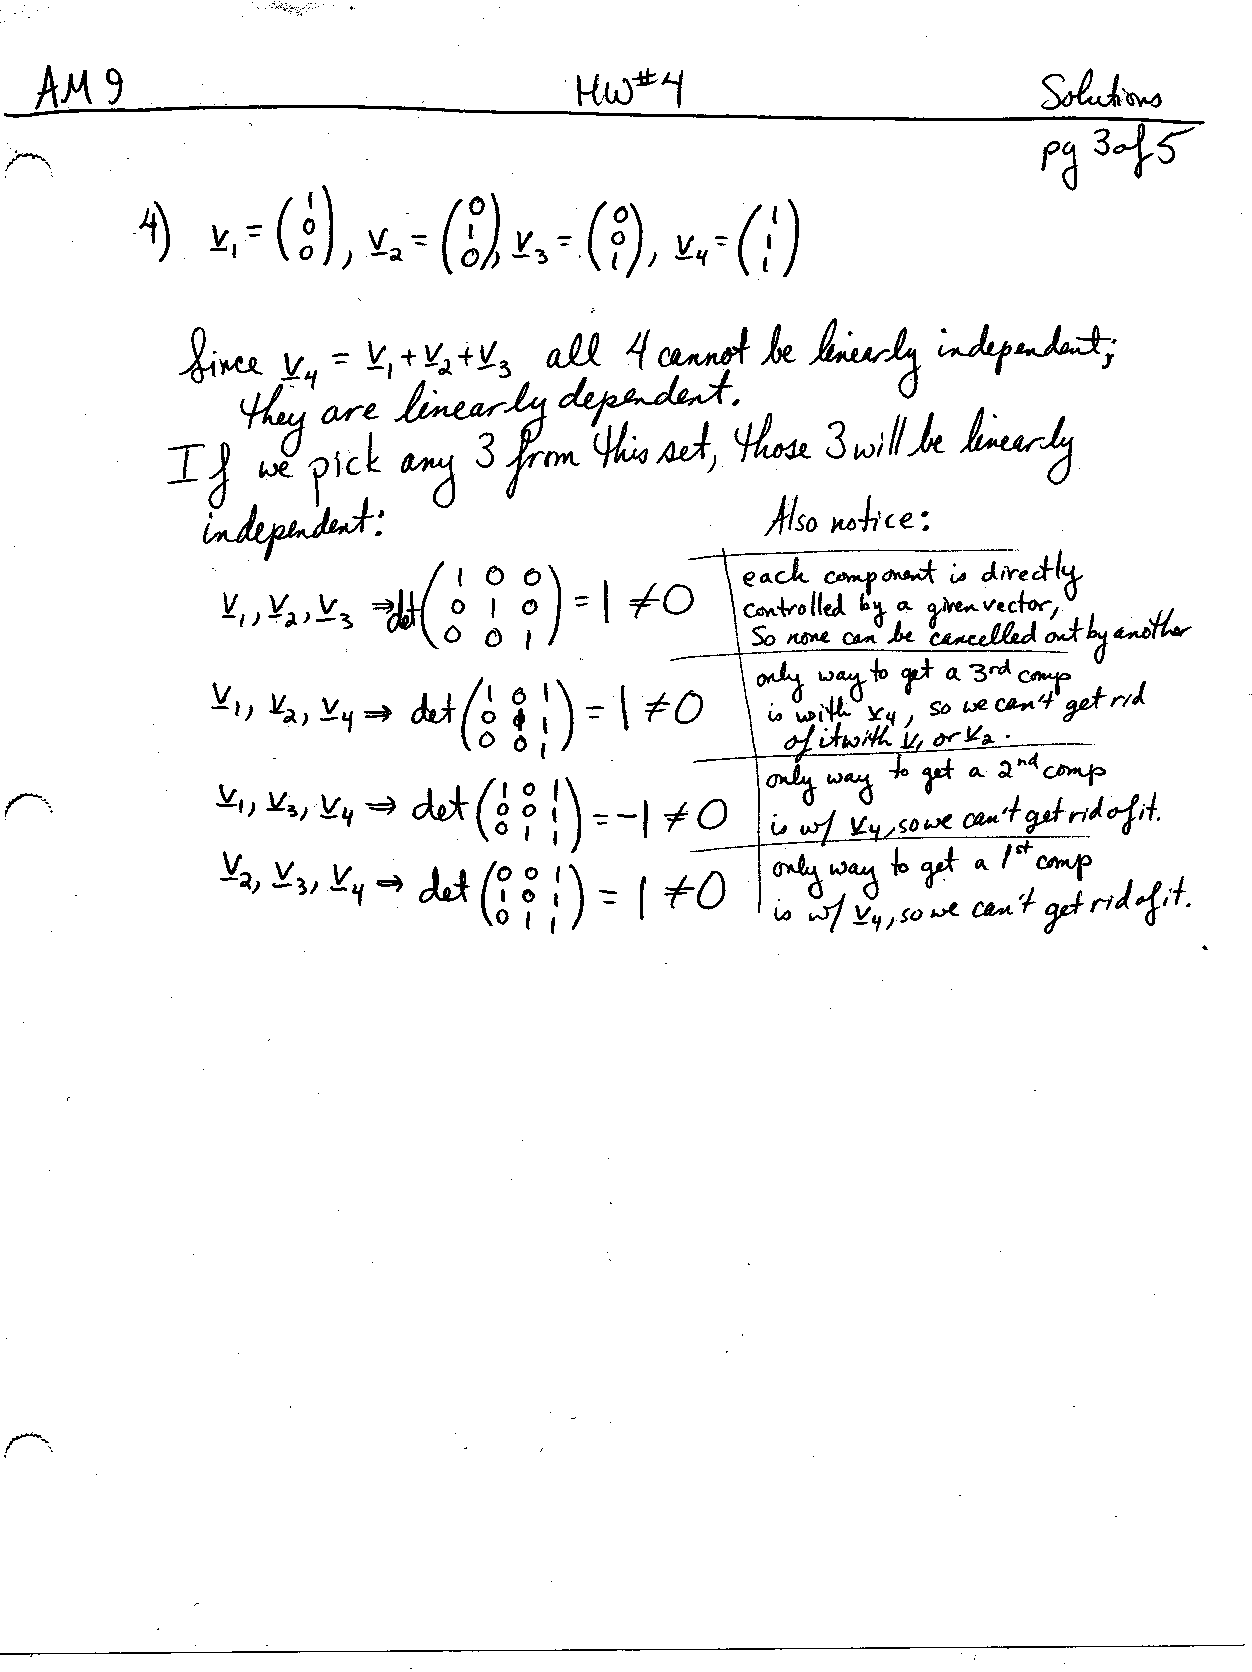 AM 9 HW#4 Solutions
pg 3 of 5
4) v₁ = (1 0 0), v₂ = (0 1 0), v₃ = (0 0 1), v₄ = (1 1 1)
Since v₄ = v₁ + v₂ + v₃ all 4 cannot be linearly independent;
they are linearly dependent.
If we pick any 3 from this set, those 3 will be linearly
independent:
Also notice:
v₁, v₂, v₃ ⇒ det (1 0 0; 0 1 0; 0 0 1) = 1 ≠ 0
each component is directly
controlled by a given vector,
So none can be cancelled out by another
v₁, v₂, v₄ ⇒ det (1 0 1; 0 1 1; 0 0 1) = 1 ≠ 0
only way to get a 3rd comp
is with v₄, so we can't get rid
of it with v₁ or v₂.
v₁, v₃, v₄ ⇒ det (1 0 1; 0 0 1; 0 1 1) = -1 ≠ 0
only way to get a 2nd comp
is w/ v₄, so we can't get rid of it.
v₂, v₃, v₄ ⇒ det (0 0 1; 1 0 1; 0 1 1) = 1 ≠ 0
only way to get a 1st comp
is w/ v₄, so we can't get rid of it.